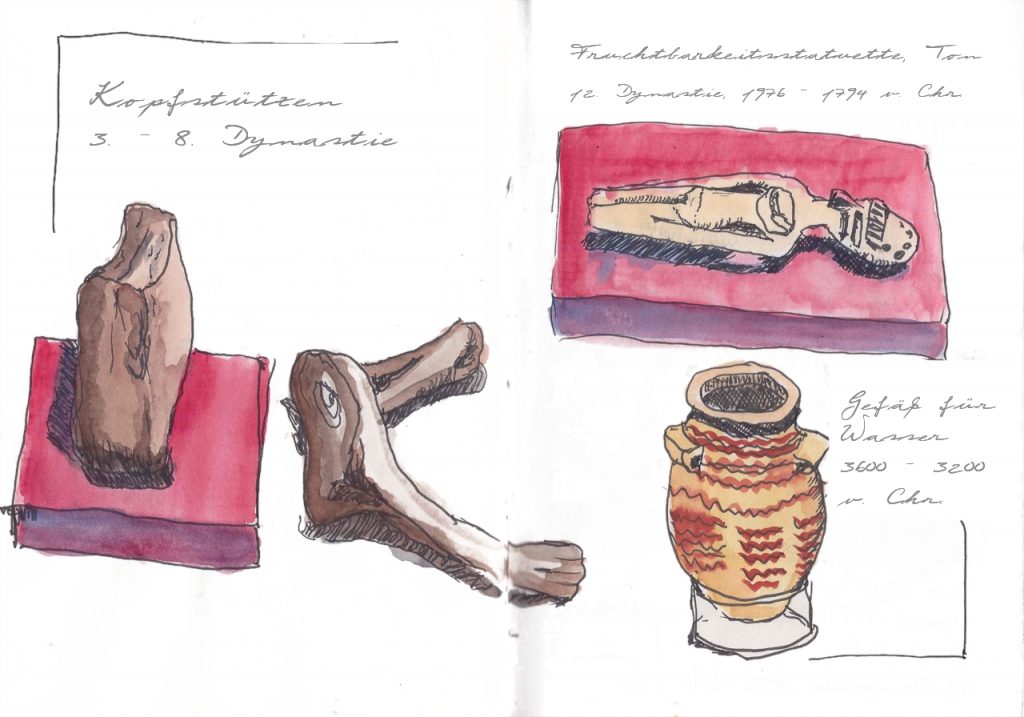 Kopfstützen
3. - 8. Dynastie
Fruchtbarkeitsstatuette, Ton
12. Dynastie, 1976 - 1794 v. Chr.
Gefäß für
Wasser
3600 - 3200
v. Chr.